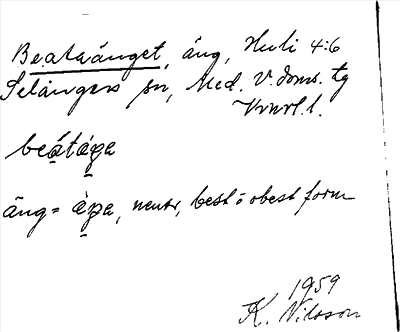 Beataänget, äng, Huli 4:6
Selångers sn, Med. V. doms. tg
Vrnrl. 1.
beátáŋa
äng = äŋa, neutr, best o obest form
1959
K. Nilsson